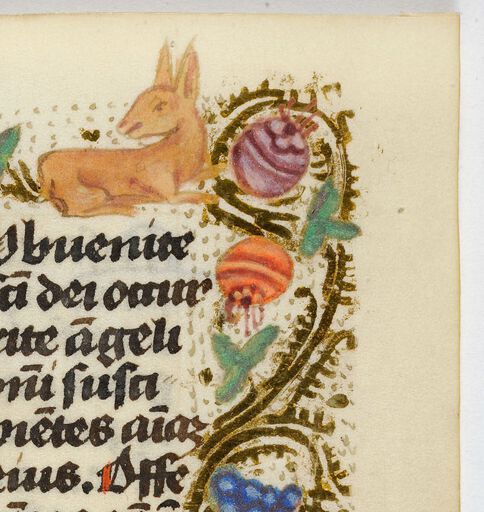 Obuenite
sci dei occur
rite āgeli
omī susci
piētes aīaz
eius. Offe